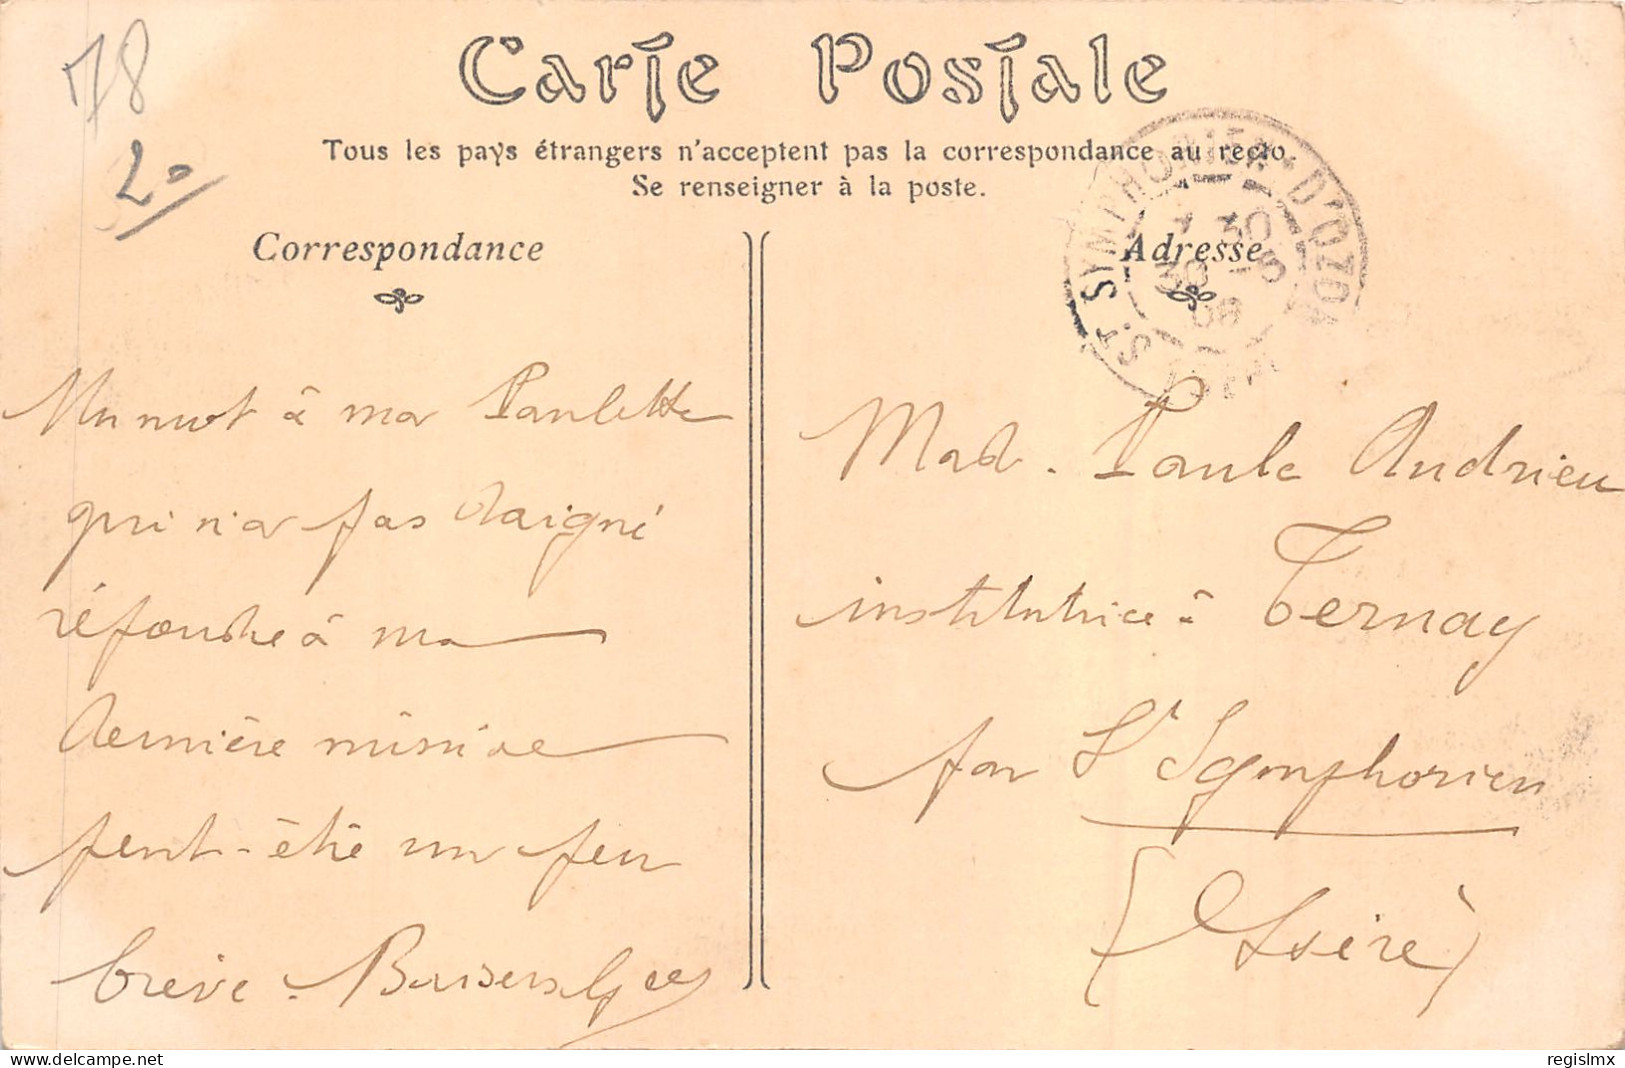 78
20
Carte Postale
Tous les pays étrangers n'acceptent pas la correspondance au recto
Se renseigner à la poste.
Correspondance
Un mot à ma Paulette
qui n'a pas daigné
répondre à ma
dernière missive
peut-être un peu
brève. Baisers
Adresse
ST SYMPHORIEN-D'OZON
7 30
30 -5
08
Mad. Paule Andrieu
institutrice à Ternay
par St Symphorien
(Isère)
delcampe.net
regislmx